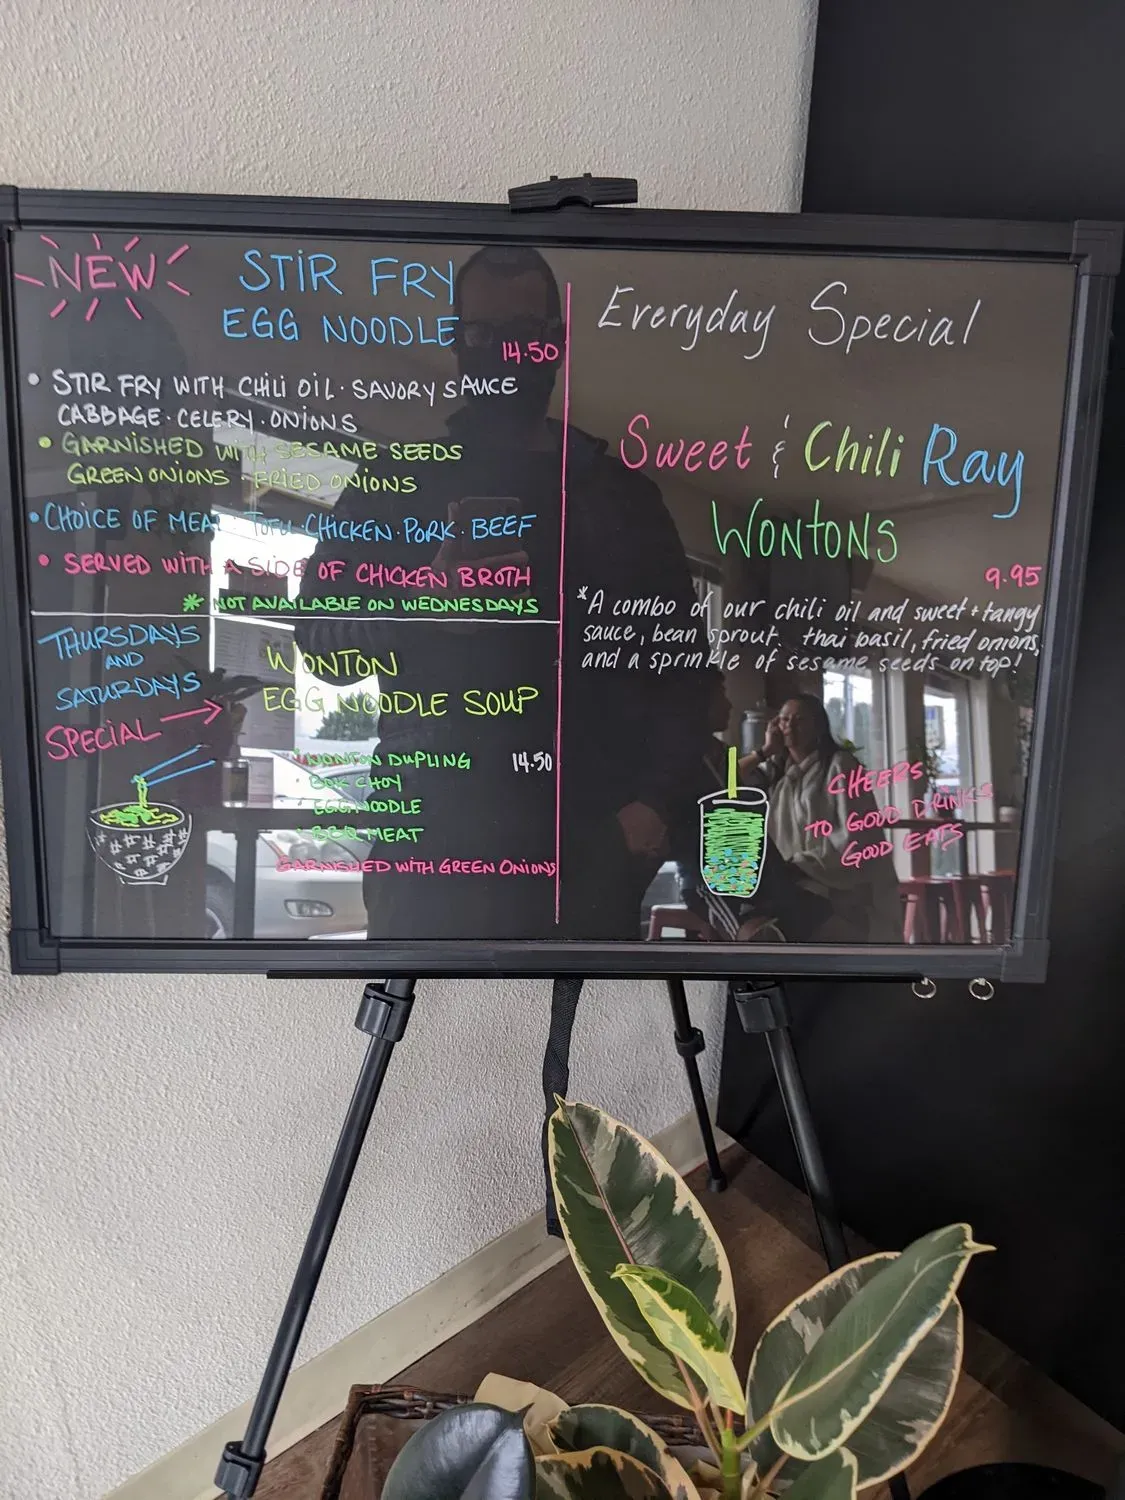 NEW
STIR FRY
EGG NOODLE
14.50
• STIR FRY WITH CHILI OIL · SAVORY SAUCE
CABBAGE · CELERY · ONIONS
• GARNISHED WITH SESAME SEEDS
GREEN ONIONS · FRIED ONIONS
• CHOICE OF MEAT · TOFU · CHICKEN · PORK · BEEF
• SERVED WITH A SIDE OF CHICKEN BROTH
* NOT AVAILABLE ON WEDNESDAYS
THURSDAYS
AND
SATURDAYS
SPECIAL →
WONTON
EGG NOODLE SOUP
14.50
• WONTON DUPLING
• BOK CHOY
• EGG NOODLE
• BBQ MEAT
GARNISHED WITH GREEN ONIONS
Everyday Special
Sweet & Chili Ray
WONTONS
9.95
*A combo of our chili oil and sweet + tangy
sauce, bean sprout, thai basil, fried onions,
and a sprinkle of sesame seeds on top!
CHEERS
TO GOOD DRINKS
GOOD EATS